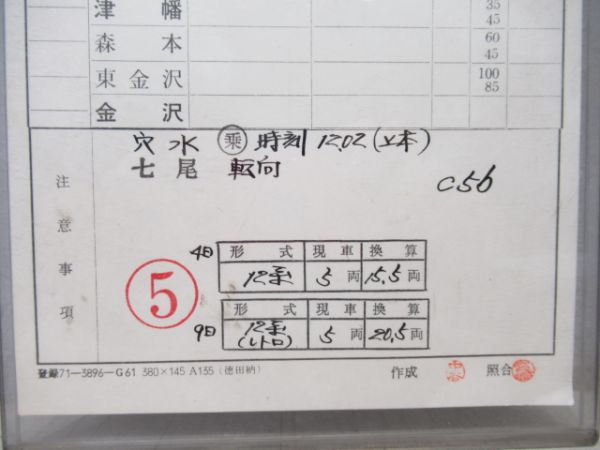 35
津幡 45
60
森本 45
100
東金沢 85
金沢
穴水 乗 時刻 12.02 (上本)
七尾 転向
C56
注意事項
4日 形式 現車 換算
12系 5両 15.5両
5
形式 現車 換算
9日 12系 (レトロ) 5両 20.5両
登録71-3896-G61 380×145 A135 (徳田納) 作成 照合